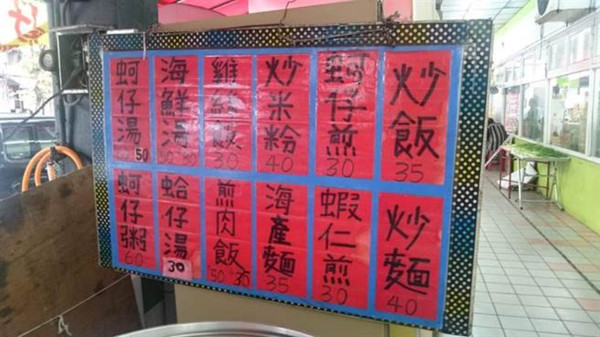 炒飯
35
蚵仔煎
30
炒米粉
40
雞絲飯
30
海鮮湯
蚵仔湯
50
炒麵
40
蝦仁煎
30
海產麵
35
煎肉飯
50 30
蛤仔湯
30
蚵仔粥
60